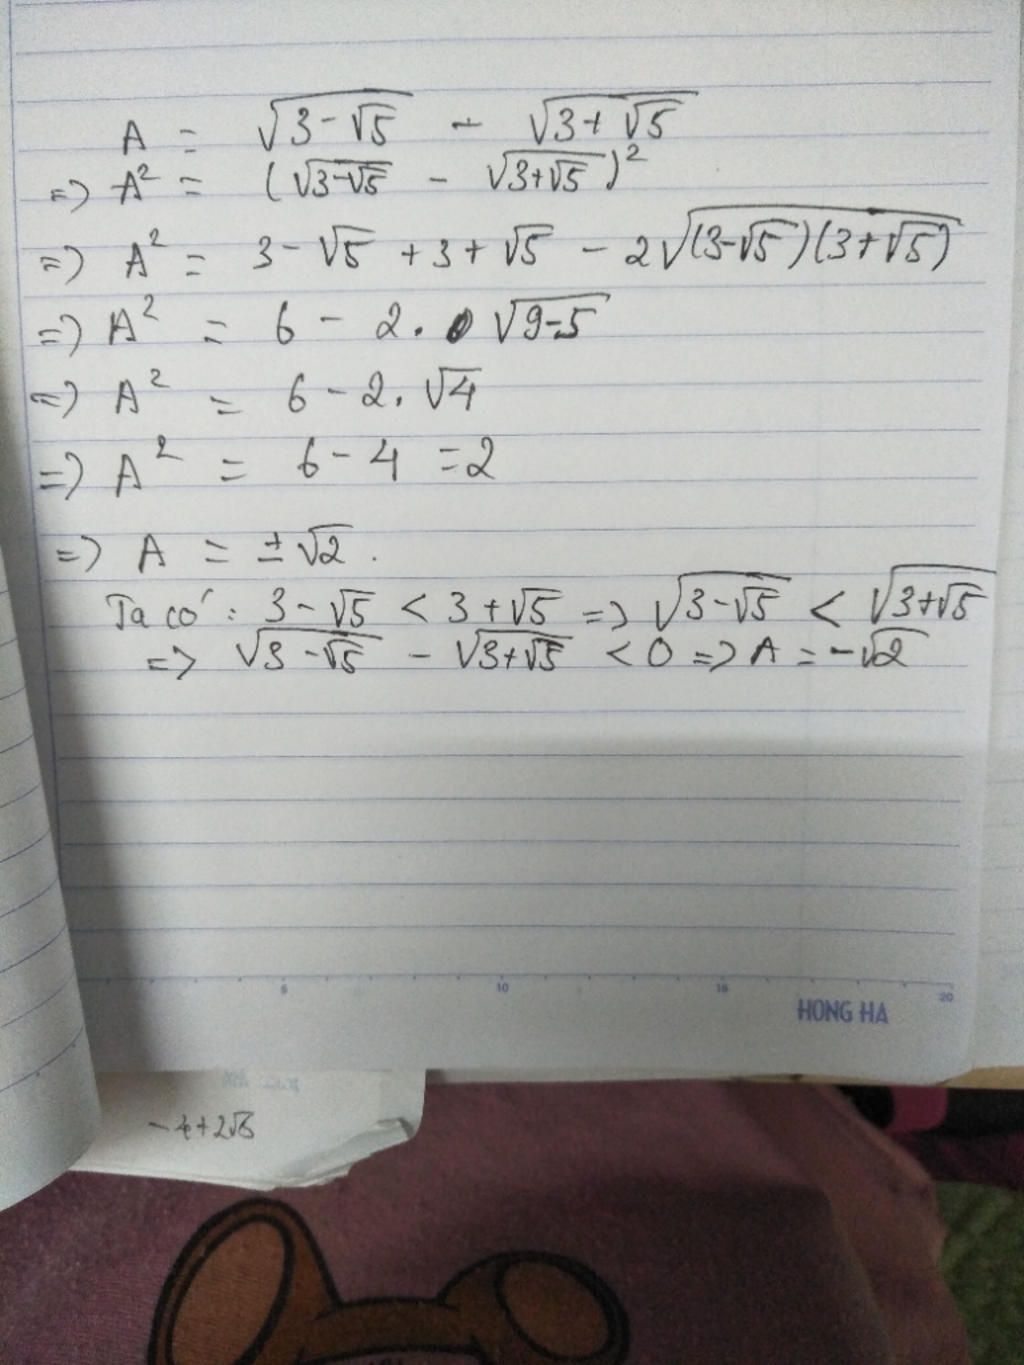 A = √(3-√5) - √(3+√5)
=> A² = (√(3-√5) - √(3+√5))²
=> A² = 3-√5 +3+√5 - 2√((3-√5)(3+√5))
=> A² = 6 - 2. √(9-5)
=> A² = 6-2. √4
=> A² = 6-4 =2
=> A = ±√2.
Ta có: 3-√5 < 3+√5 => √(3-√5) < √(3+√5)
=> √(3-√5) - √(3+√5) < 0 => A = -√2
5 10 15 20
HONG HA